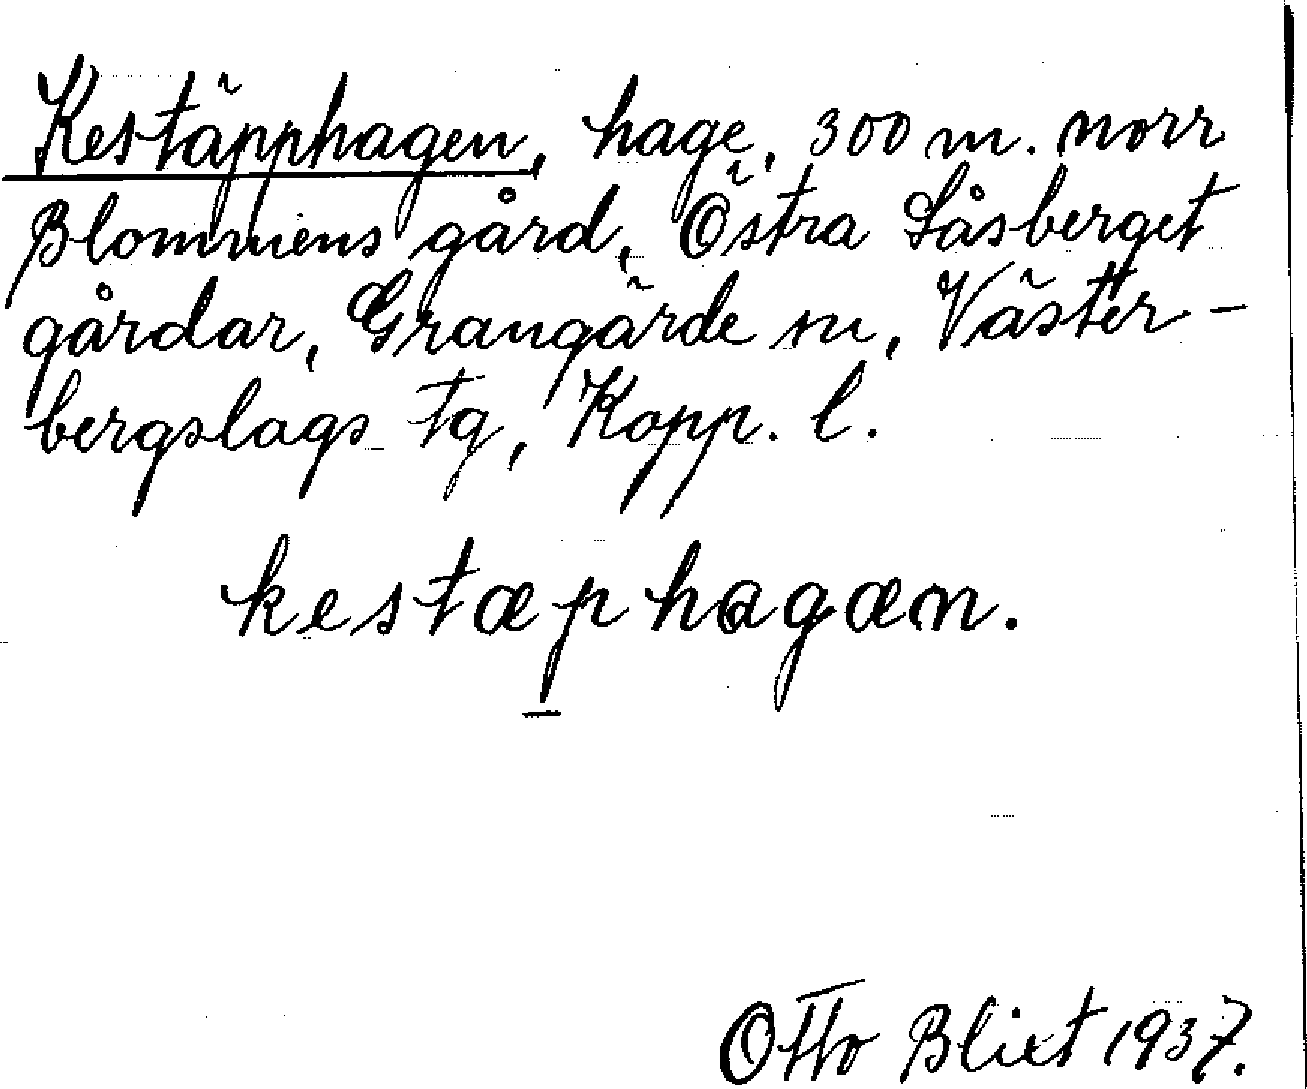 Kestäpphagen, hage, 300 m. norr
Blommens gård, Östra Låsberget
gårdar, Grangärde sn, Väster-
bergslags tg, Kopp. l.
kestæp hagæn.
Otto Blixt 1937.